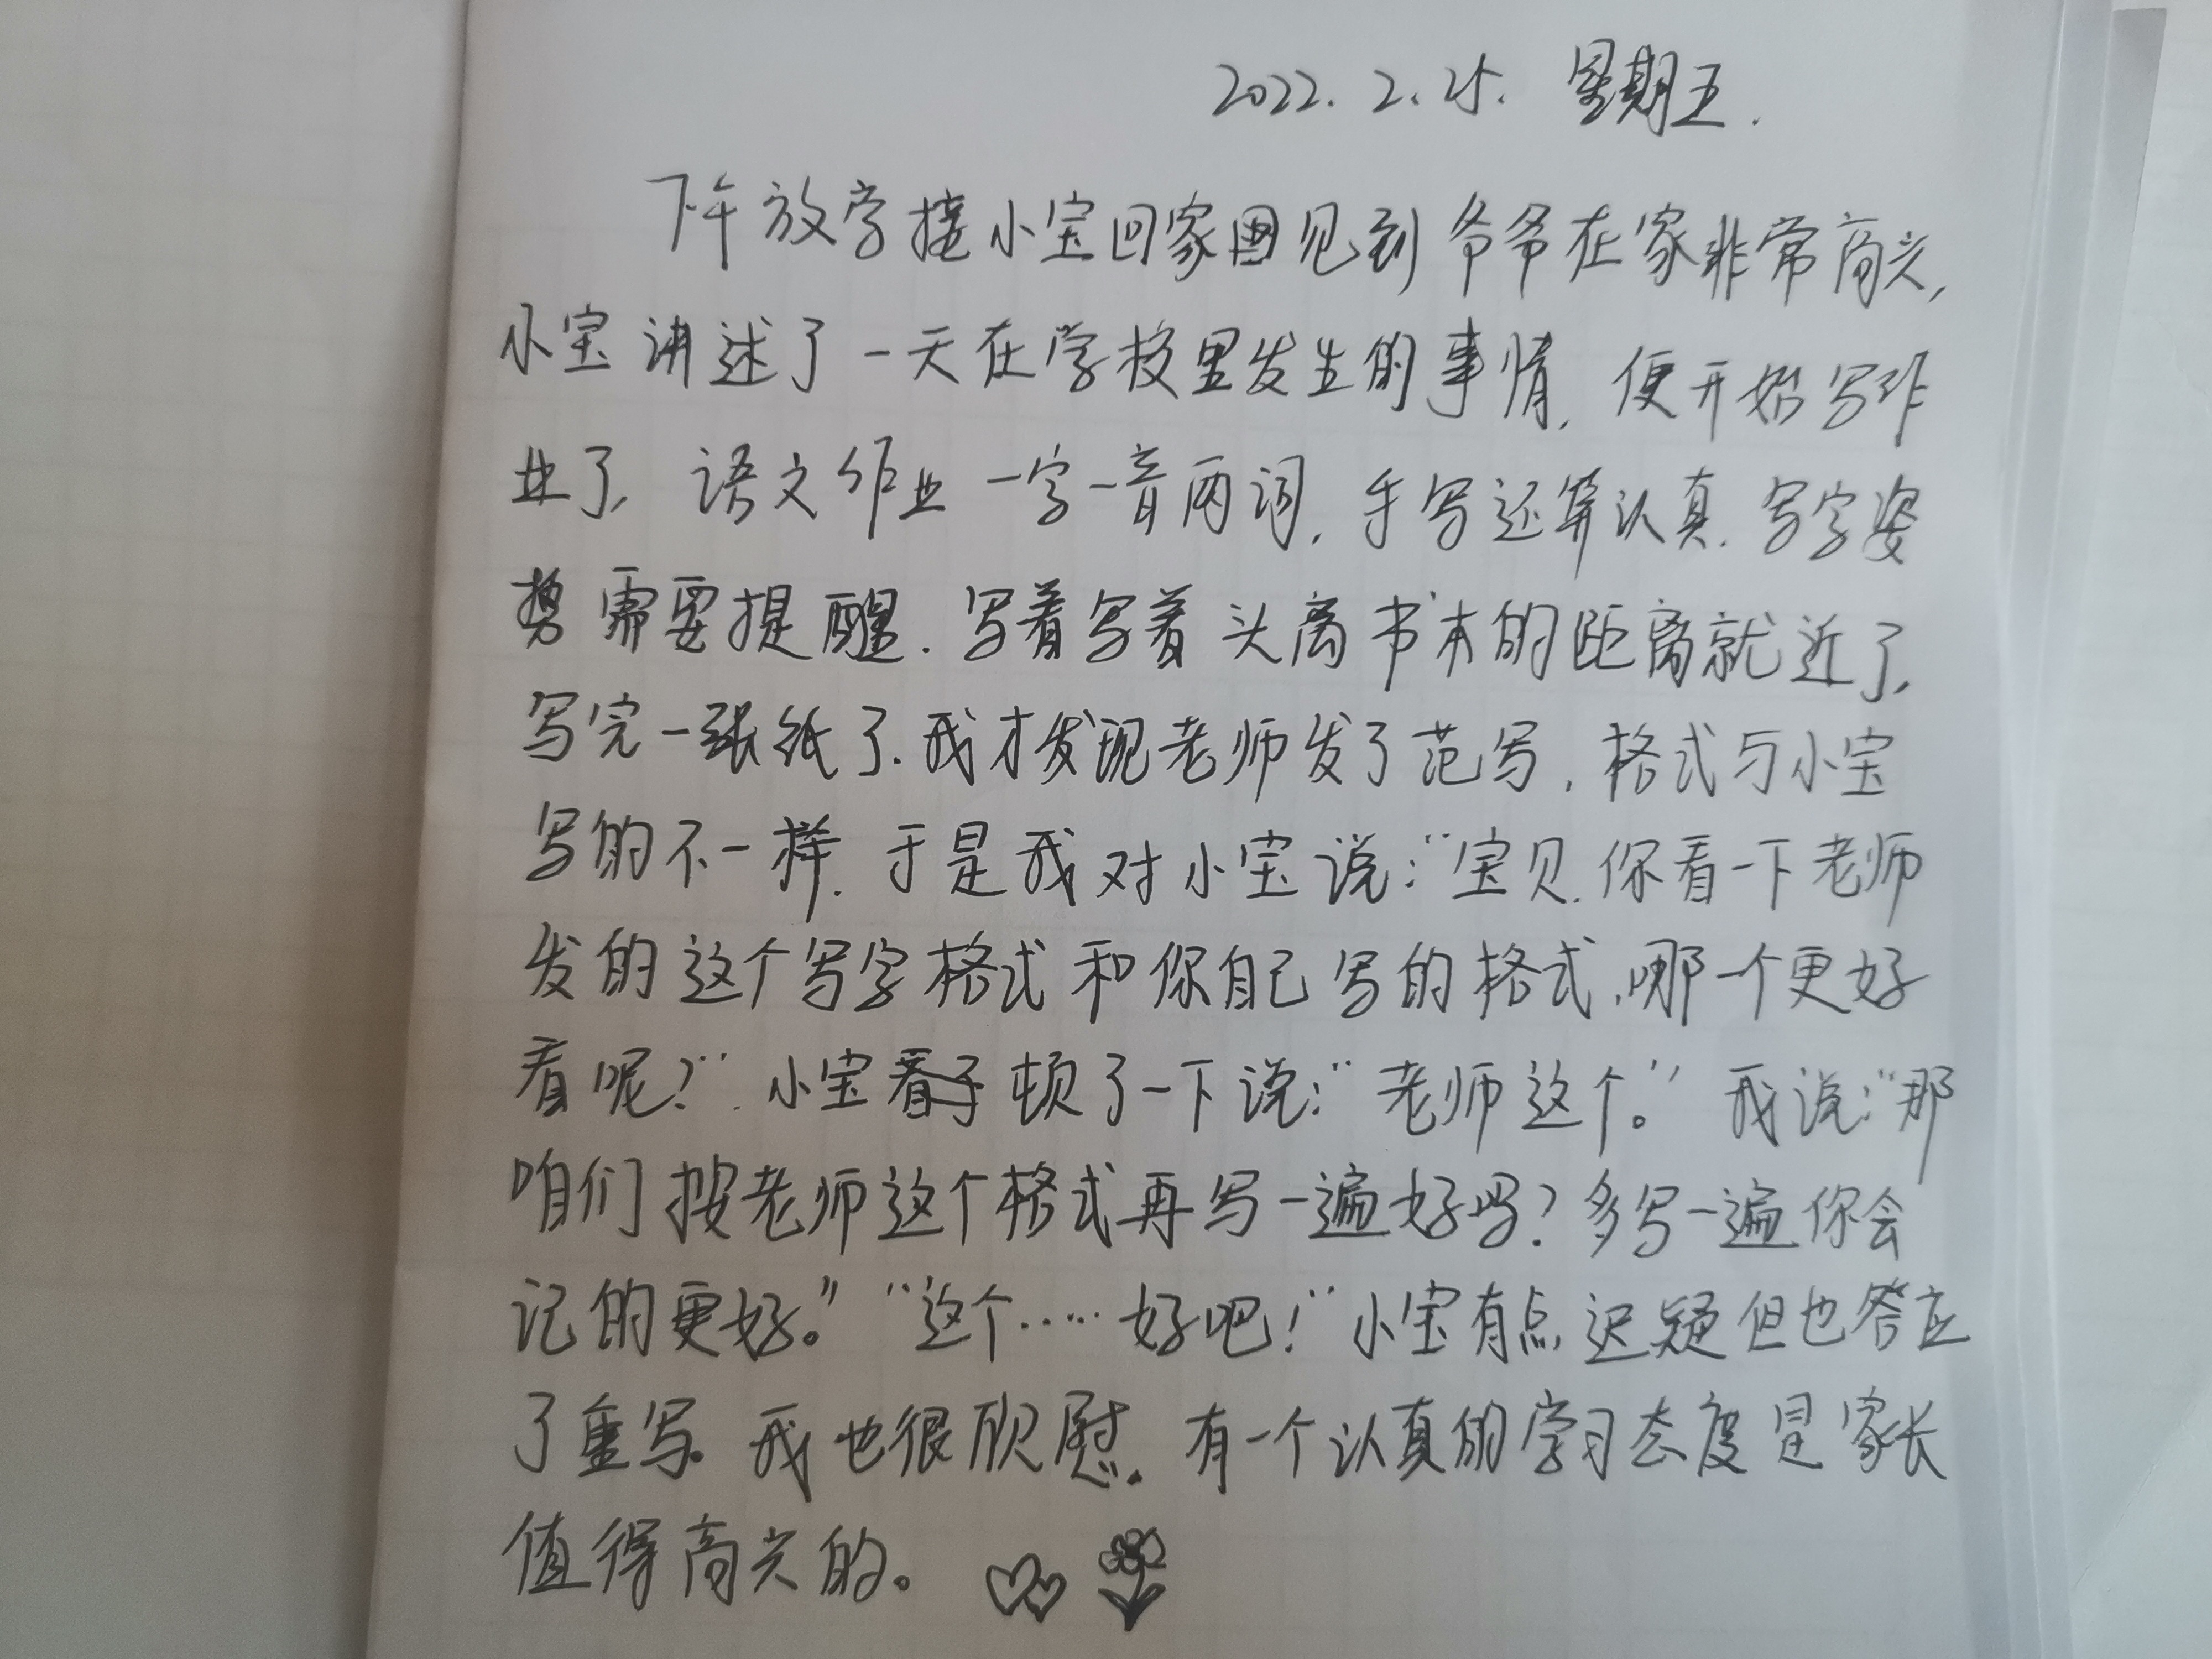 2022.2.25. 星期五.
下午放学接小宝回家因见到爷爷在家非常高兴,
小宝讲述了一天在学校里发生的事情,便开始写作
业了,语文作业一字一音两词,手写还算认真.写字姿
势需要提醒.写着写着头离书本的距离就近了,
写完一张纸了.我才发现老师发了范写,格式与小宝
写的不一样.于是我对小宝说:“宝贝.你看一下老师
发的这个写字格式和你自己写的格式,哪一个更好
看呢?”.小宝顿了一下说:“老师这个。”我说:“那
咱们按老师这个格式再写一遍好吗?多写一遍你会
记的更好。”“这个……好吧!”小宝有点迟疑但也答应
了重写。我也很欣慰.有一个认真的学习态度是家长
值得高兴的。